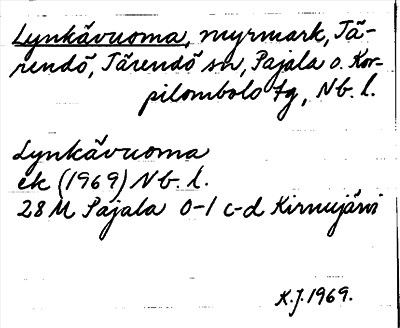 Lynkävuoma, myrmark, Tä-
rendö, Tärendö sn, Pajala o. Kor-
pilombolo tg, Nb. l.
Lynkävuoma
ek (1969) Nb. l.
28 M Pajala 0-1 c-d Kirnujärvi
K.J. 1969.